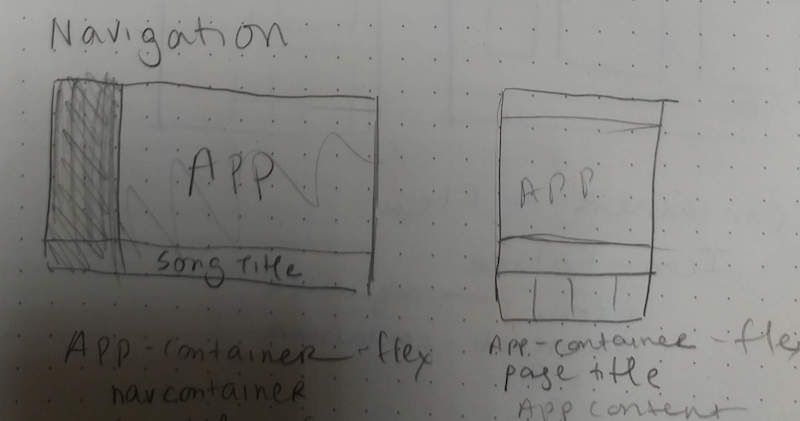 Navigation
APP
Song Title
App-container-flex
navcontainer
APP
App-container-flex
page title
App content